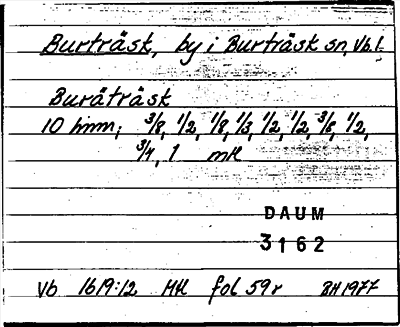 Burträsk, by i Burträsk sn, Vb.l.
Buråträsk
10 hmn; 3/8, 1/2, 1/8, 1/3, 1/2, 1/2, 3/8, 1/2,
3/4, 1 mtl
DAUM
3162
Vb 1619:12 Mtl fol 59r BH 1977